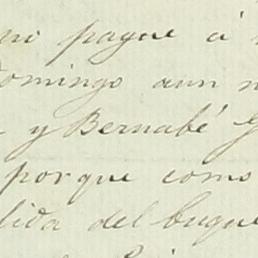 no pague á
Domingo aun
y Bernabé
porque como
lida del buque